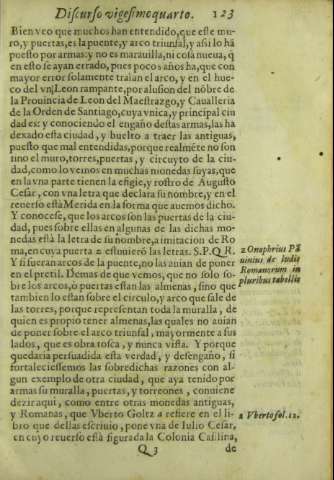 Discurso vigesimoquarto. 123
Bien veo que muchos han entendido, que este mu-
ro, y puertas, es la puente, y arco triunfal, y assi lo hā
puesto por armas: y no es marauilla, ni cosa nueua, q̄
en esto se ayan errado, pues pocos años ha, que con
mayor error solamente traìan el arco, y en el hue-
co del vn Leon rampante, por alusion del nōbre de
la Prouincia de Leon del Maestrazgo, y Caualleria
de la Orden de Santiago, cuya vnica, y principal ciu
dad es: y conociendo el engaño destas armas, las ha
dexado esta ciudad, y buelto a traer las antiguas,
puesto que mal entendidas, porque realmēte no son
sino el muro, torres, puertas, y circuyto de la ciu-
dad, como lo vemos en muchas monedas suyas, que
en la vna parte tienen la efigie, y rostro de Augusto
Cesar, con vna letra que declara su nombre, y en el
reuerso està Merida en la forma que auemos dicho.
Y conocese, que los arcos son las puertas de la ciu-
dad, pues sobre ellas en algunas de las dichas mo-
nedas està la letra de su nombre, a imitacion de Ro
ma, en cuya puerta 2 estuuierō las letras. S.P.Q.R.
Y si fueran arcos de la puente, no las auian de poner
en el pretil. Demas de que vemos, que no solo so-
bre los arcos, ò puertas estan las almenas, sino que
tambien lo estan sobre el circulo, y arco que sale de
las torres, porque representan toda la muralla, de
quien es propio tener almenas, las quales no auian
de poner sobre el arco triunfal, mayormente a sus
lados, que es obra tosca, y nunca vista. Y porque
quedaria persuadida esta verdad, y desengaño, si
fortaleciessemos las sobredichas razones con al-
gun exemplo de otra ciudad, que aya tenido por
armas su muralla, puertas, y torreones, conuiene
dezir aqui, como entre otras monedas antiguas,
y Romanas, que Vberto Goltz a refiere en el li-
bro que dellas escriuio, pone vna de Iulio Cesar,
en cuyo reuerso està figurada la Colonia Casilina,
Q 3 de
2 Onuphrius Pā
uinius de ludis
Romanorum in
pluribus tabellis
a Vberto fol. 12.